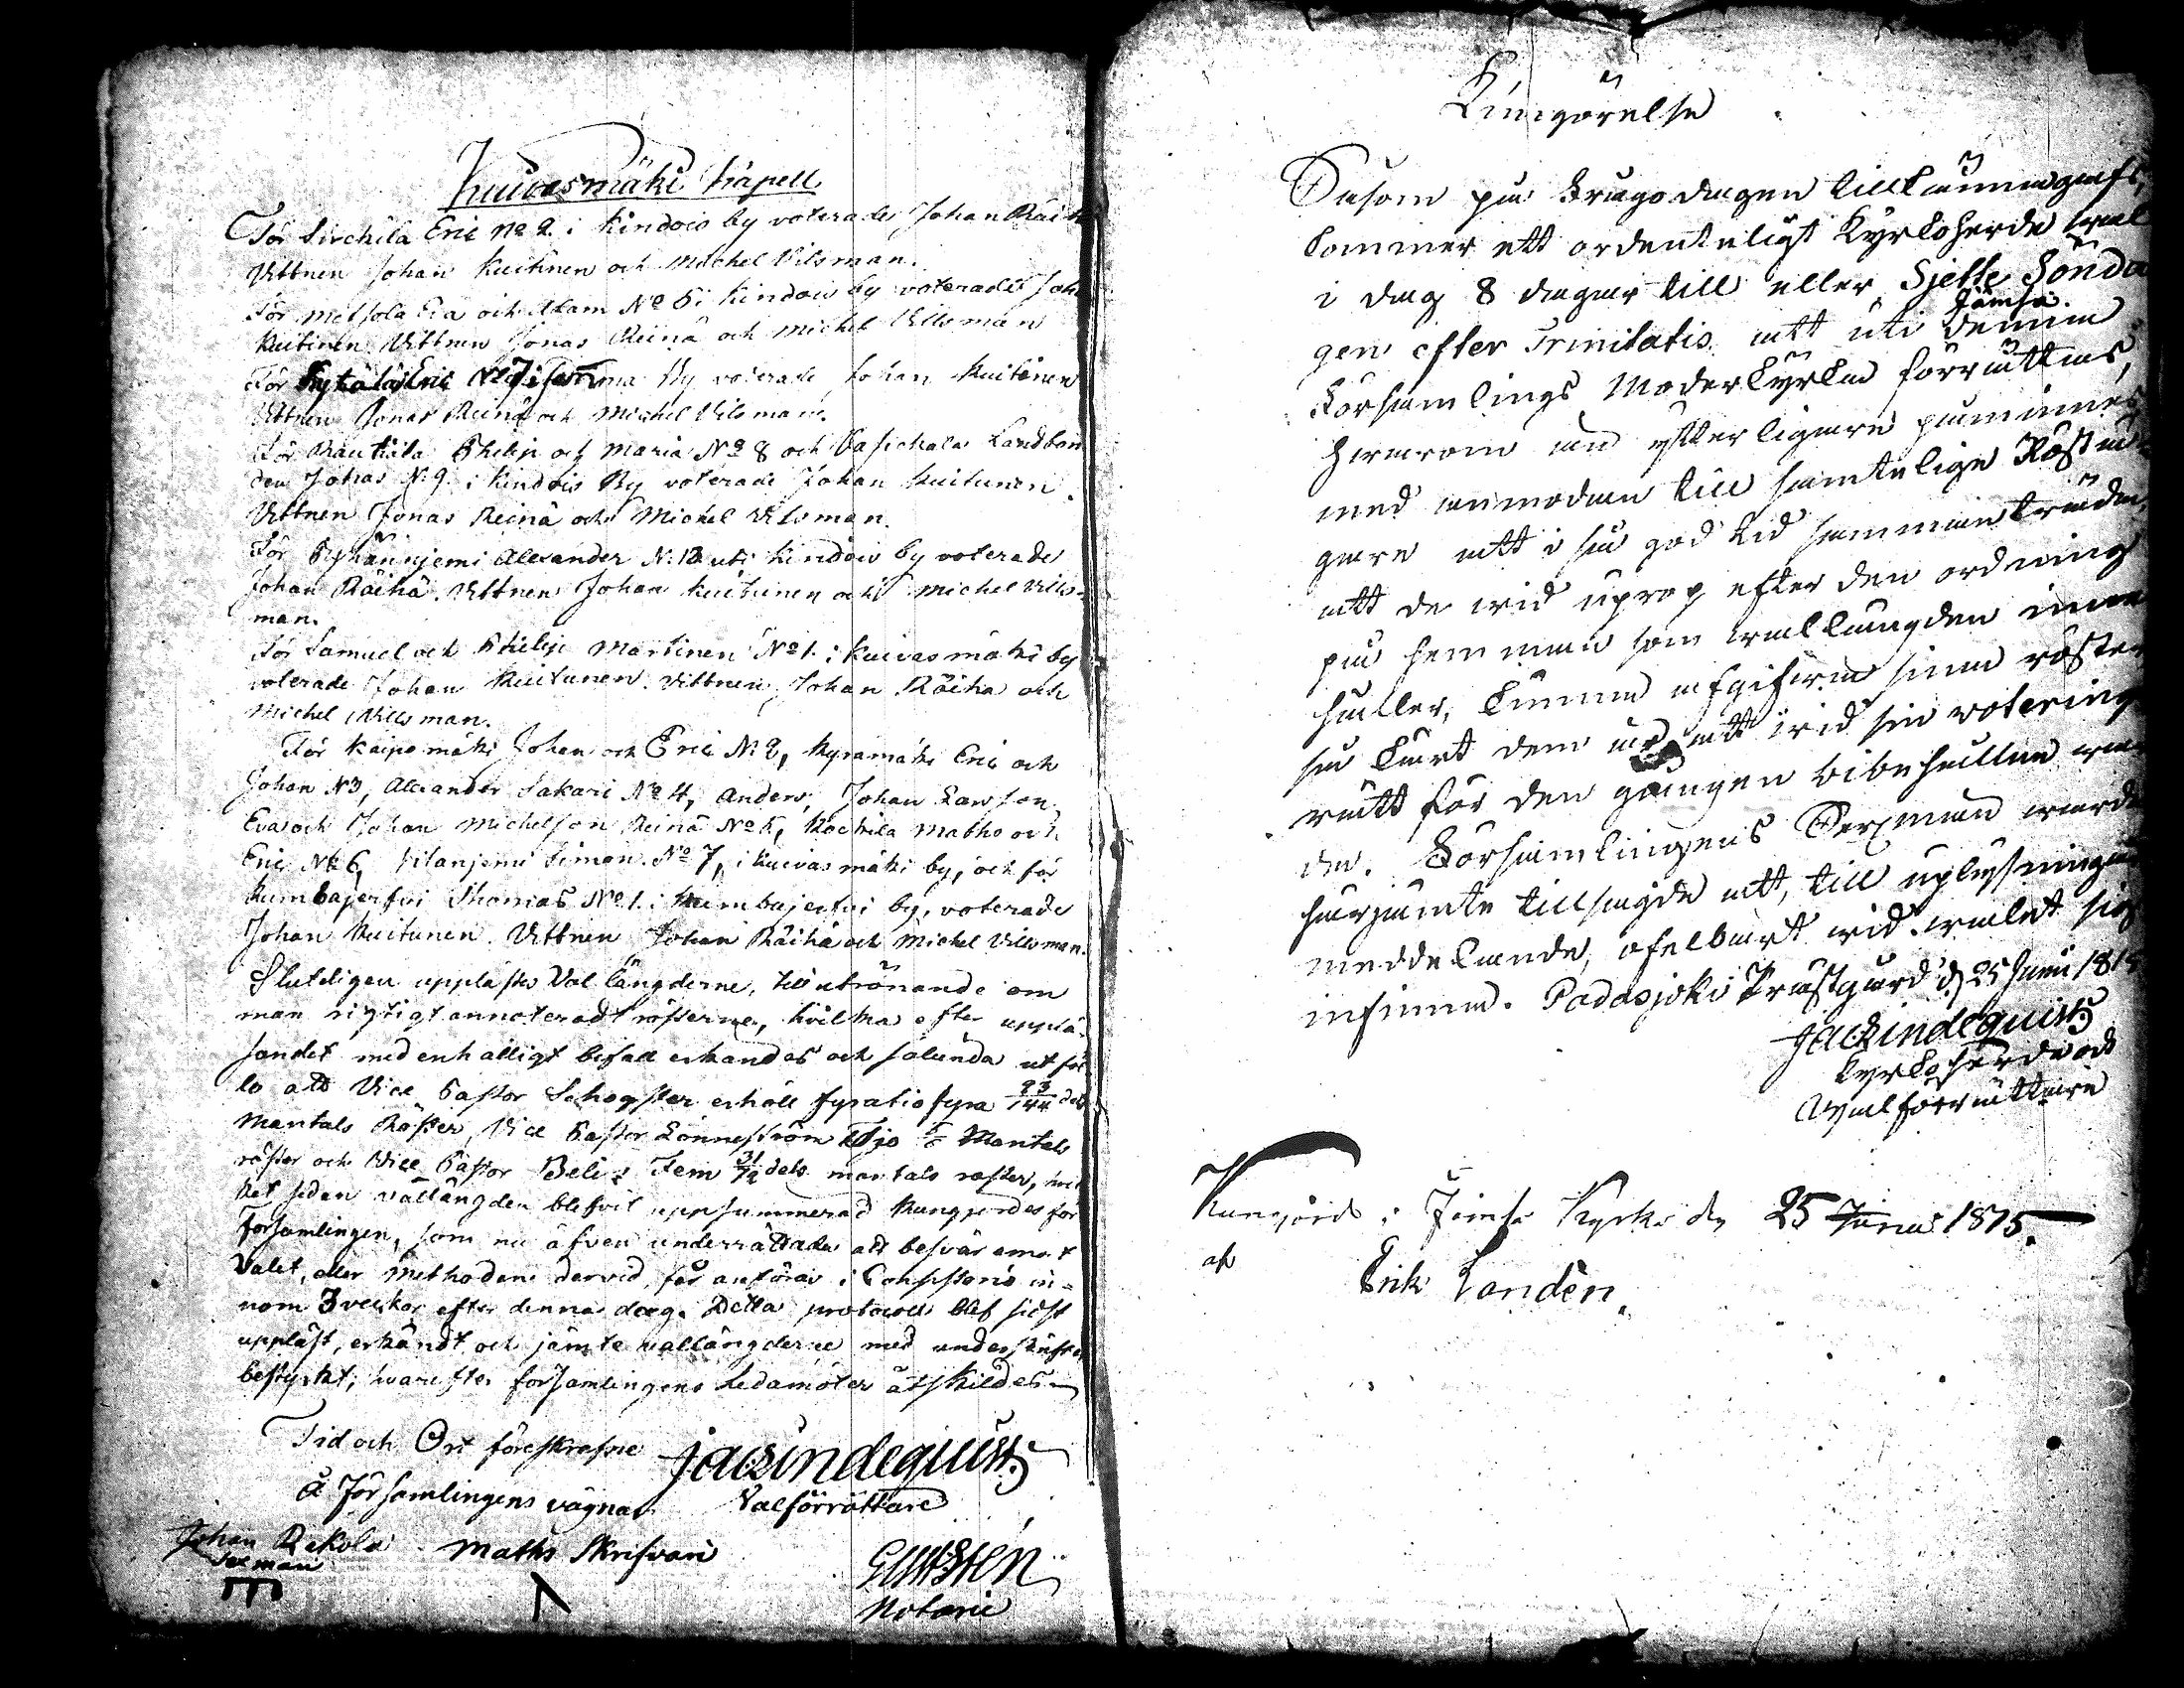 Kuivasmäki Kapell
För Sirckila Eric No 2. i Kindois by voterade Johan Räihä
Vittnen Johan Kuitinen och Michel Vilsman.
För Metsola Eva och Adam No 6 i Kindois by voterade Joh
Kuitinen Vittnen Jonas Reinä och Michel Villsman
För Eric No 7 i samma By voterade Johan Kuitinen
Vittnen Jonas Reinä och Michel Vilsman.
För Rautiala Philip och Maria No 8 och Landbon
den Johas N. 9. i Kindois By voterade Johan Kuitunen.
Vittnen Jonas Reinä och Michel Vilsman.
För Pyhänniemi Alexander N. 13 uti Kindois by voterade
Johan Räihä. Vittnen Johan Kuitunen och Michel Vills-
man.
För Samuel och Philip Martinen No 1. i Kuivasmäki by
voterade Johan Kuitunen. Vittnen Johan Räihä och
Michel Villsman.
För Kaipomäki Johan och Eric N. 2, Kyramäki Eric och
Johan N3, Alexander Sakari No 4, Anders, Johan Larsson
Eva och Johan Michelsson Reinä No 5, Kockila Matho och
Eric No 6, Simon No 7, i Kuivasmäki by, och för
Kumbajerfvi Thomas No 1. i Kumbujerfvi by, voterade
Johan Kuitunen. Vittnen Johan Räihä och Michel Villsman.
Sluteligen upplästes Vallängderne, till utrönande om
man rigtigt annoteradt rösterne, hvilka efter upplä-
sandet med enhälligt bifall erkändes och sålunda utföl
lo att Vice Pastor Schogster erhöll fyratiofyra 93/144 dels
Mantals Röster, Vice Pastor Lönneström Tjo Mantals
röster och Vice Pastor Beli Fem 31/72 dels mantals röster, hvil
ket sedan vallängden blefvit uppsummerad kungjordes för
Församlingen, som nu äfven underrättades att besvär emot
Valet, eller Methoden dervid, får anföras i Consistorio in-
nom 3 veckor efter denna dag. Detta protocoll blef sidst
uppläst, erkändt och jämte vallängderne med underskrift
bestyrkt; hvarefter församlingens Ledamöter åtskildes
Tid och Ort föreskrefne
Å Församlingens vägnar
Jac Lindequist
Valförrättare
Johan Rekola
Sexman
Maths Skrifvari
Notarie
Kungörelse
Såsom på Krugodagen tillkännagifs,
kommer ett ordenteligit Kyrkoherde wal
i dag 8 dagar till eller Sjette Sönda
gen efter Trinitatis att uti denna Jämsä
Församlings Moderkyrka förrättas,
härom än ytterligare påminnes
med anmodan till samtelige Röstä
gare att i så god tid sammanträda,
att de wid uprop efter den ordning
på hemman som wallängden inne
håller, kunna afgifwa sina röster
så kärt dem är att wid sin votering
rätt för den gången bibehållne war
da. Församlingens Sexmän warda
härjämte tillsagde att, till uplysningars
meddelande, ofelbart wid walet sig
infinna. Padasjoki Prästgård d 25 Junii 1815
Jac Lindequist
Kyrkoherde och
Walförrättare
Kungjord i Jämsä Kyrka den 25 Junii 1815.
af
Erik Landén.